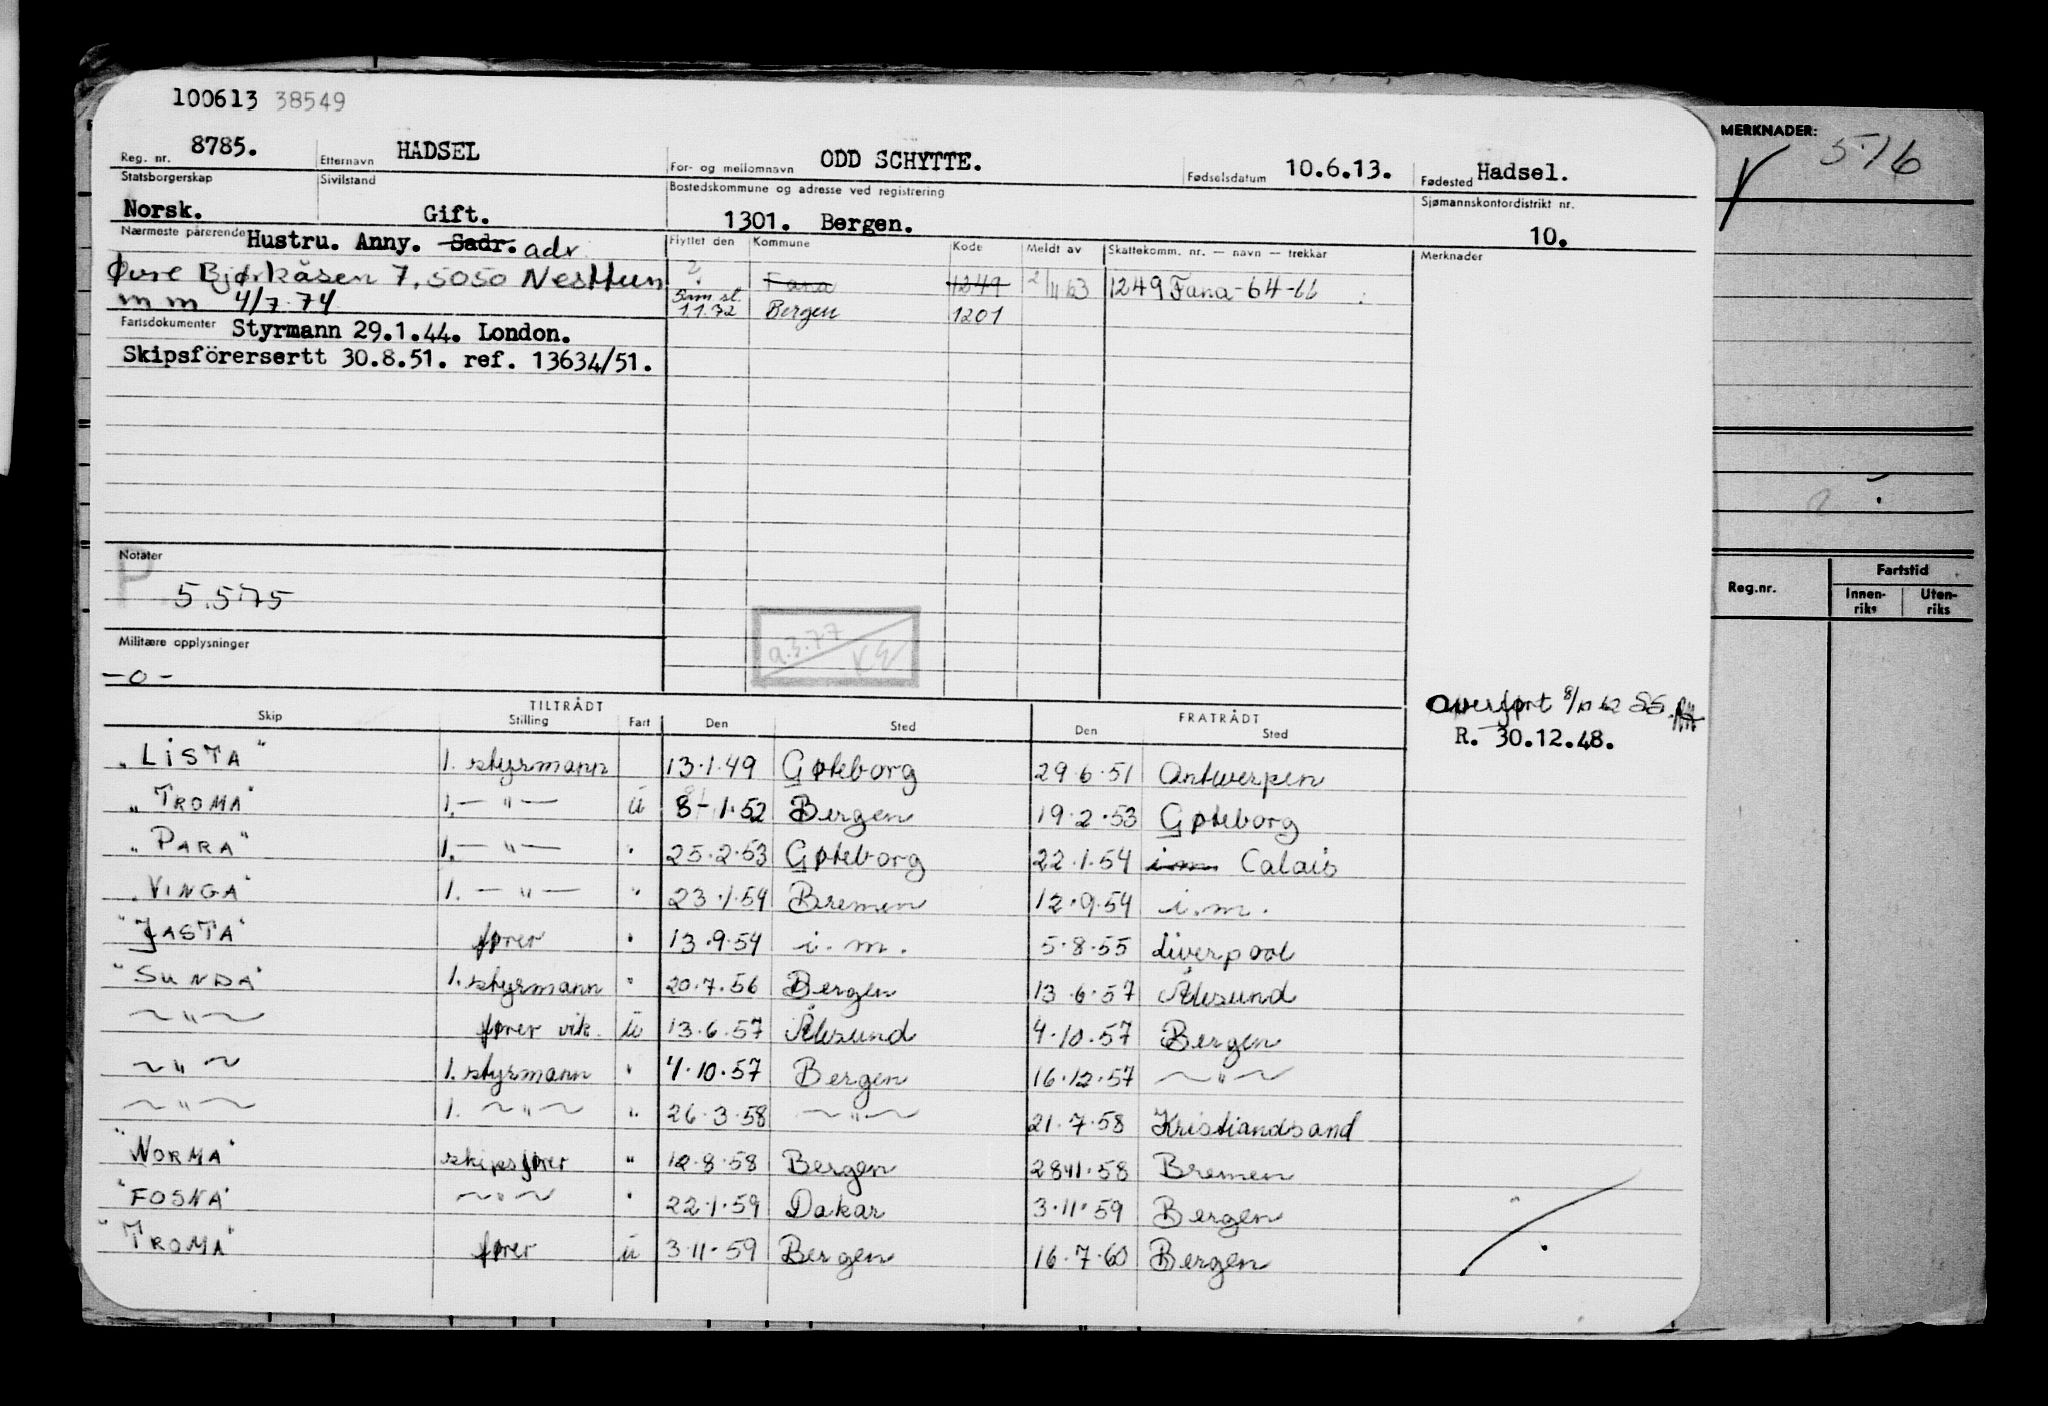 100613 38549
Reg. nr. 8785. Etternavn HADSEL For- og mellomnavn ODD SCHYTTE. Fødselsdatum 10.6.13. Fødested Hadsel.
Statsborgerskap Sivilstand Bostedskommune og adresse ved registrering Sjømannskontordistrikt nr.
Norsk. Gift. 1301. Bergen. 10.
Nærmeste pårørende Hustru. Anny. Sadr. adr Flyttet den Kommune Kode Meldt av Skattekomm. nr. — navn — trekkår Merknader
Øvre Bjørkåsen 7, 5050 Nesttun ? Fana 1249 2/11 63 1249 Fana - 64 - 66
m m 4/7 74 11.72 Bergen 1201
Fartsdokumenter Styrmann 29.1.44. London.
Skipsförersertt 30.8.51. ref. 13634/51.
Notater
P 5.5.75
Militære opplysninger
- o -
Overført 8/11 62
R. 30.12.48.
TILTRÅDT FRATRÅDT
Skip Stilling Fart Den Sted Den Sted
"LISTA" 1. styrmann 13.1.49 Gøteborg 29.6.51 Antwerpen
"TROMA" 1. — " — ü 8-1.52 Bergen 19.2.53 Gøteborg
"PARA" 1. — " — " 25.2.53 Gøteborg 22.1.54 i.m. Calais
"VINGA" 1. — " — " 23.1.54 Bremen 12.9.54 i.m.
"JASTA" fører " 13.9.54 i.m. 5.8.55 Liverpool
"SUNDA" 1. styrmann " 20.7.56 Bergen 13.6.57 Ålesund
~ " ~ fører vik. ü 13.6.57 Ålesund 4.10.57 Bergen
~ " ~ 1. styrmann " 4.10.57 Bergen 16.12.57 ~ " ~
~ " ~ 1. ~ " ~ " 26.3.58 ~ " ~ 21.7.58 Kristiandsand
"NORMA" skipsfører " 12.8.58 Bergen 28.11.58 Bremen
"FOSNA" ~ " ~ " 22.1.59 Dakar 3.11.59 Bergen
"TROMA" fører ü 3.11.59 Bergen 16.7.60 Bergen
MERKNADER: 576
Reg.nr. Fartstid
Innen-riks Uten-riks